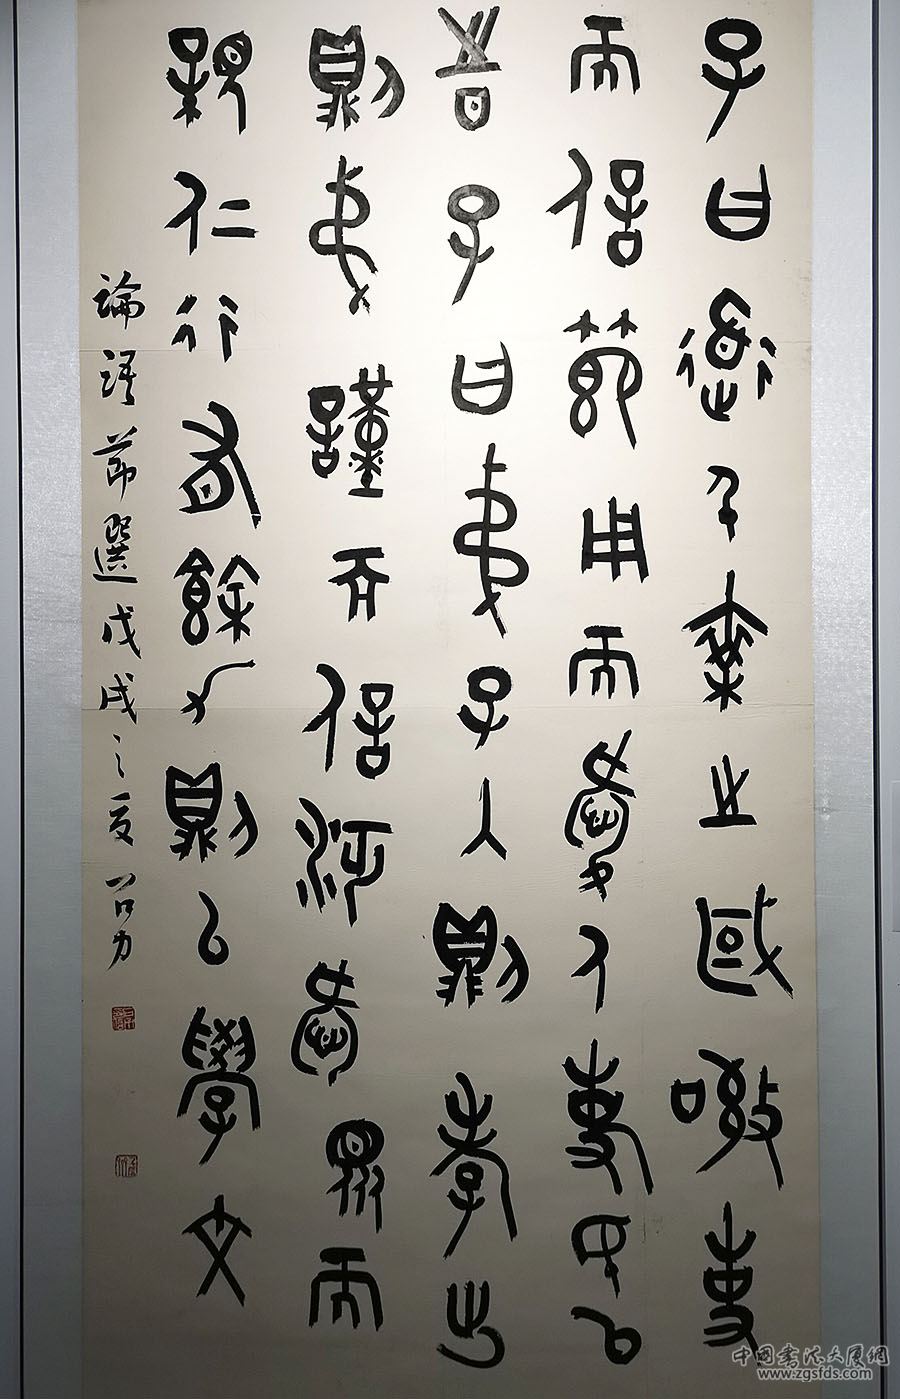 子曰道千乘之國敬事
而信節用而愛人使民以
時子曰弟子入則孝出
則弟謹而信汎愛眾而
親仁行有餘力則以學文
論語節選戊戌之夏
中國書法大展網
www.zgsfds.com